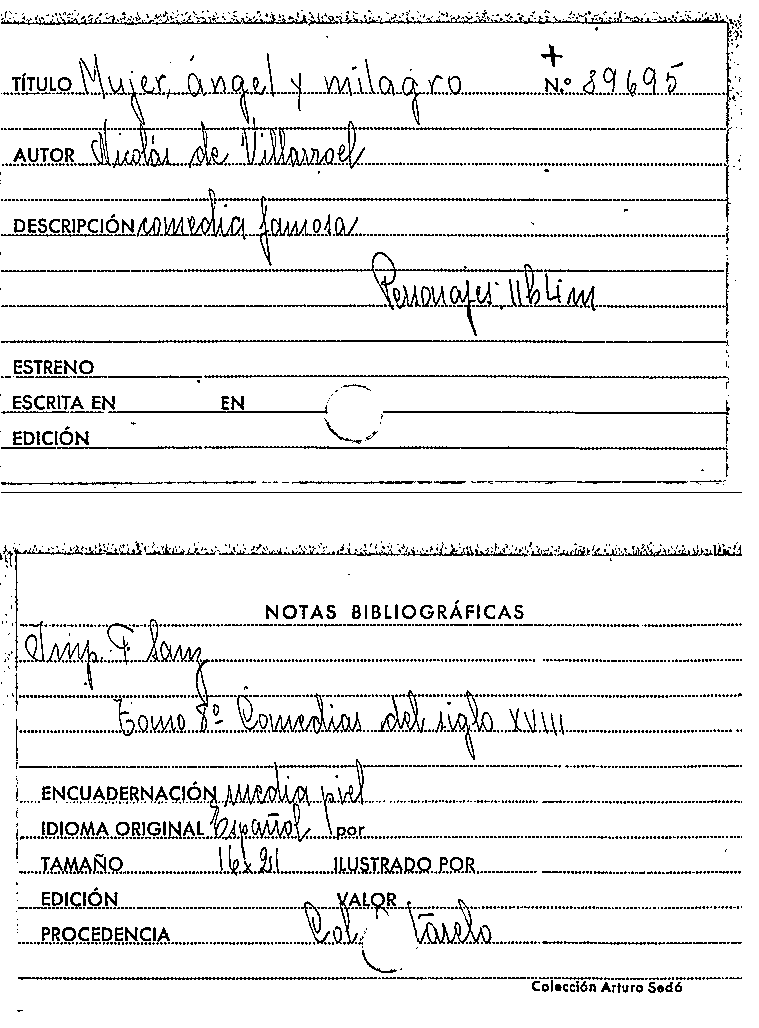 TÍTULO Mujer, ángel y milagro
+
N.º 39695
AUTOR Nicolás de Villarroel
DESCRIPCIÓN comedia famosa
Personajes: 11h 4m
ESTRENO
ESCRITA EN EN
EDICIÓN
NOTAS BIBLIOGRÁFICAS
Imp. F Sanz
Tomo 8º Comedias del siglo XVIII
ENCUADERNACIÓN media piel
IDIOMA ORIGINAL Español por
TAMAÑO 16x21 ILUSTRADO POR
EDICIÓN VALOR
PROCEDENCIA Col
Colección Arturo Sedó